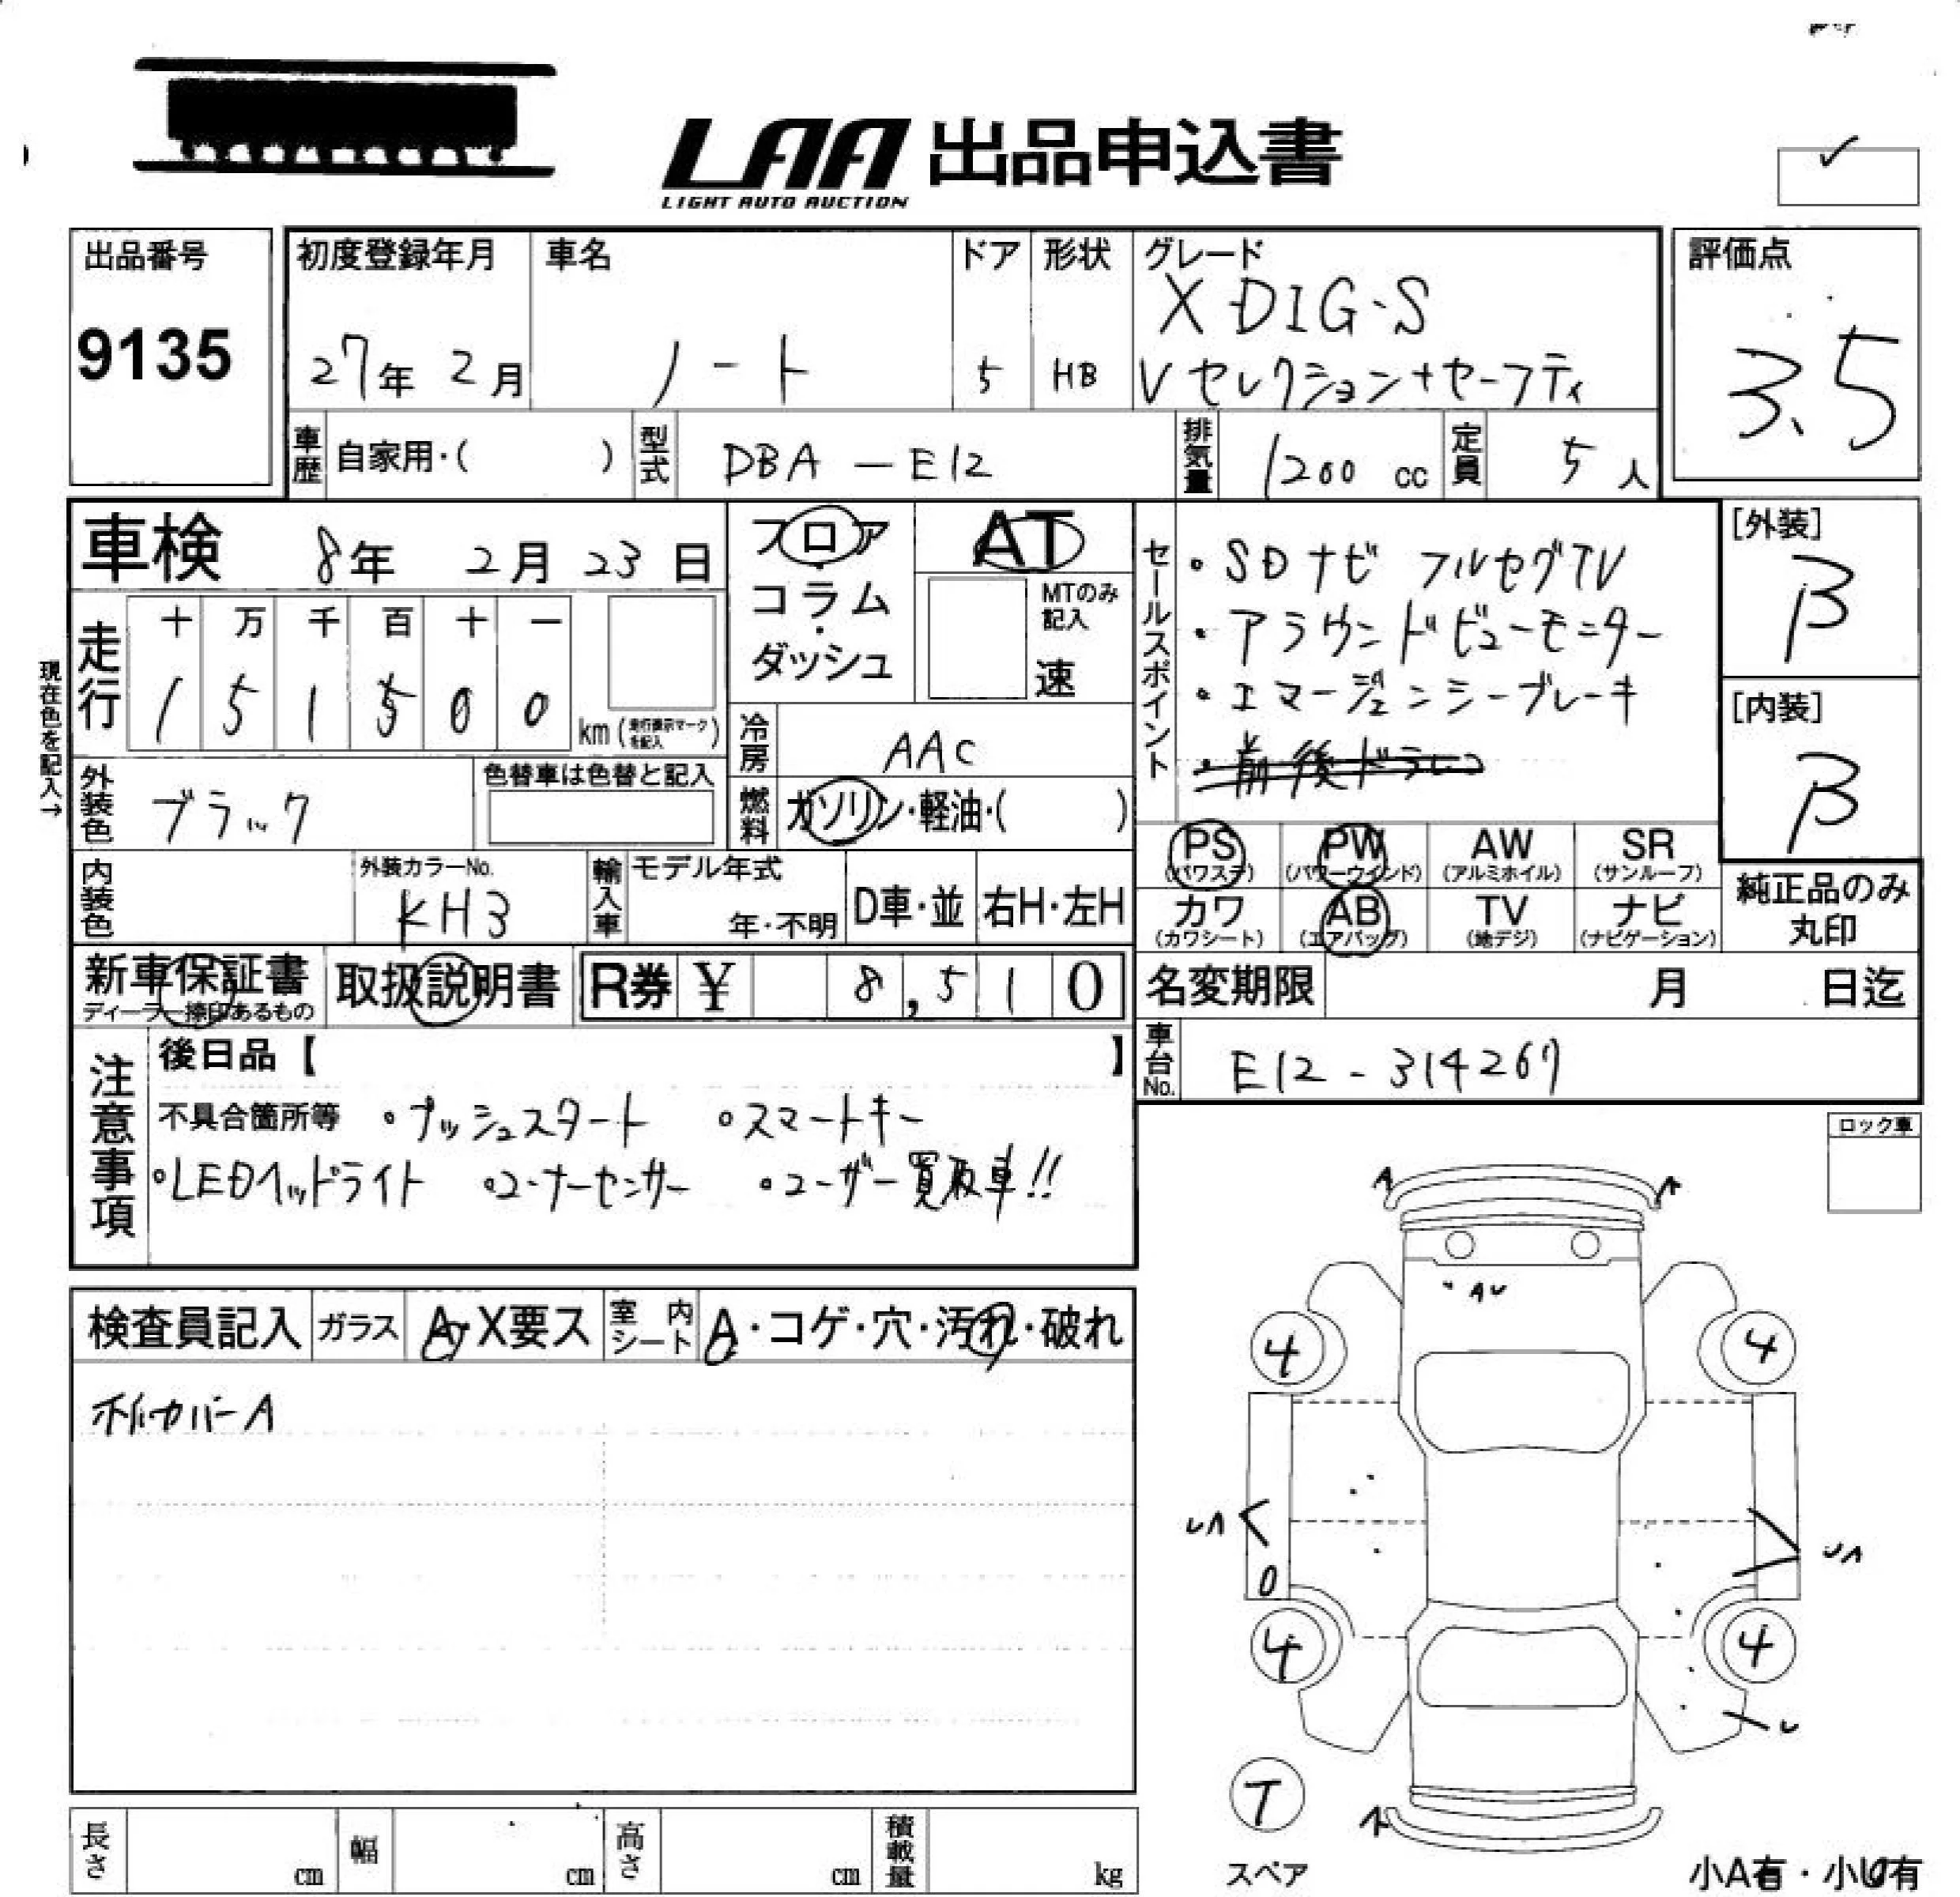 LAA 出品申込書
LIGHT AUTO AUCTION
出品番号
9135
初度登録年月
27年 2月
車名
ノート
ドア
5
形状
HB
グレード
X DIG-S
Vセレクション+セーフティ
評価点
3.5
車歴 自家用・( )
型式 DBA-E12
排気量 1200 cc
定員 5人
車検 8年 2月 23日
フロア
コラム
・
ダッシュ
AT
MTのみ
記入
速
セールスポイント
・SDナビ フルセグTV
・アラウンドビューモニター
・エマージェンシーブレーキ
・前後ドラレコ
[外装]
β
[内装]
β
現在色を記入→
走行
十 万 千 百 十 一
1 5 1 5 0 0 km (走行表示マークを記入)
冷房 AAC
燃料 ガソリン・軽油・( )
外装色 ブラック
色替車は色替と記入
内装色
外装カラーNo.
KH3
輸入車
モデル年式
年・不明
D車・並
右H・左H
PS
(パワステ)
PW
(パワーウインド)
AW
(アルミホイル)
SR
(サンルーフ)
カワ
(カワシート)
AB
(エアバッグ)
TV
(地デジ)
ナビ
(ナビゲーション)
純正品のみ
丸印
新車保証書
ディーラー捺印あるもの
取扱説明書
R券 ¥ 8,510
名変期限 月 日迄
車台No. E12-314267
注意事項
後日品【 】
不具合箇所等 ・プッシュスタート ・スマートキー
・LEDヘッドライト ・コーナーセンサー ・ユーザー買取車!!
ロック車
検査員記入
ガラス A・X要ス
室内シート A・コゲ・穴・汚れ・破れ
ホイルカバーA
A
A
AU
4
4
UA
UA
4
4
U
T
スペア
A
小A有・小U有
長さ cm
幅 cm
高さ cm
積載量 kg